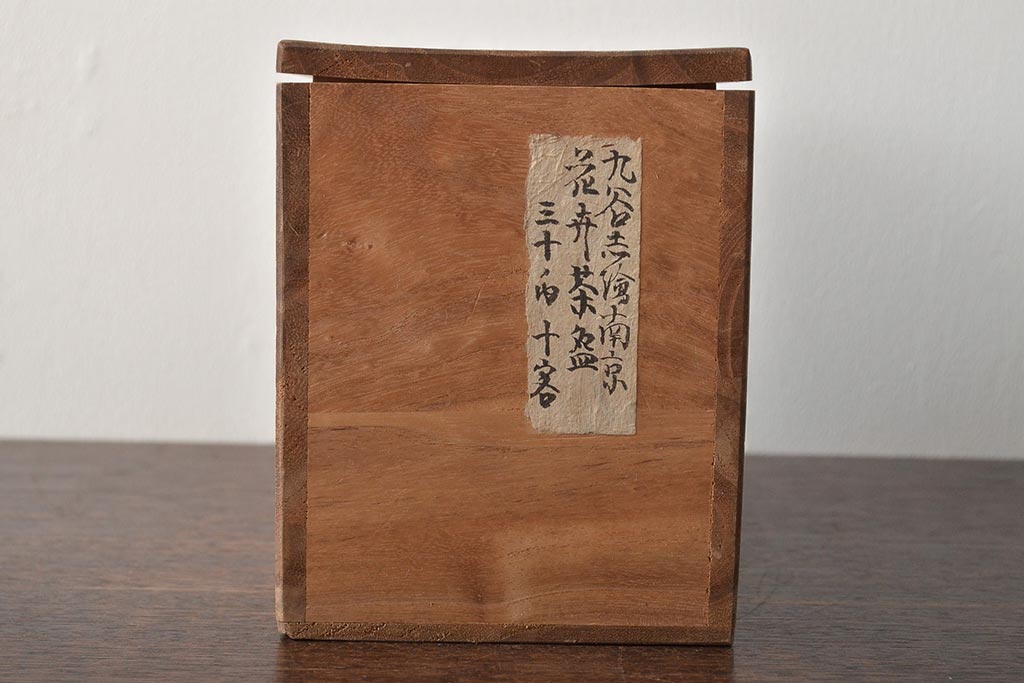 九谷赤繪南京
花卉茶盌
三十内十客